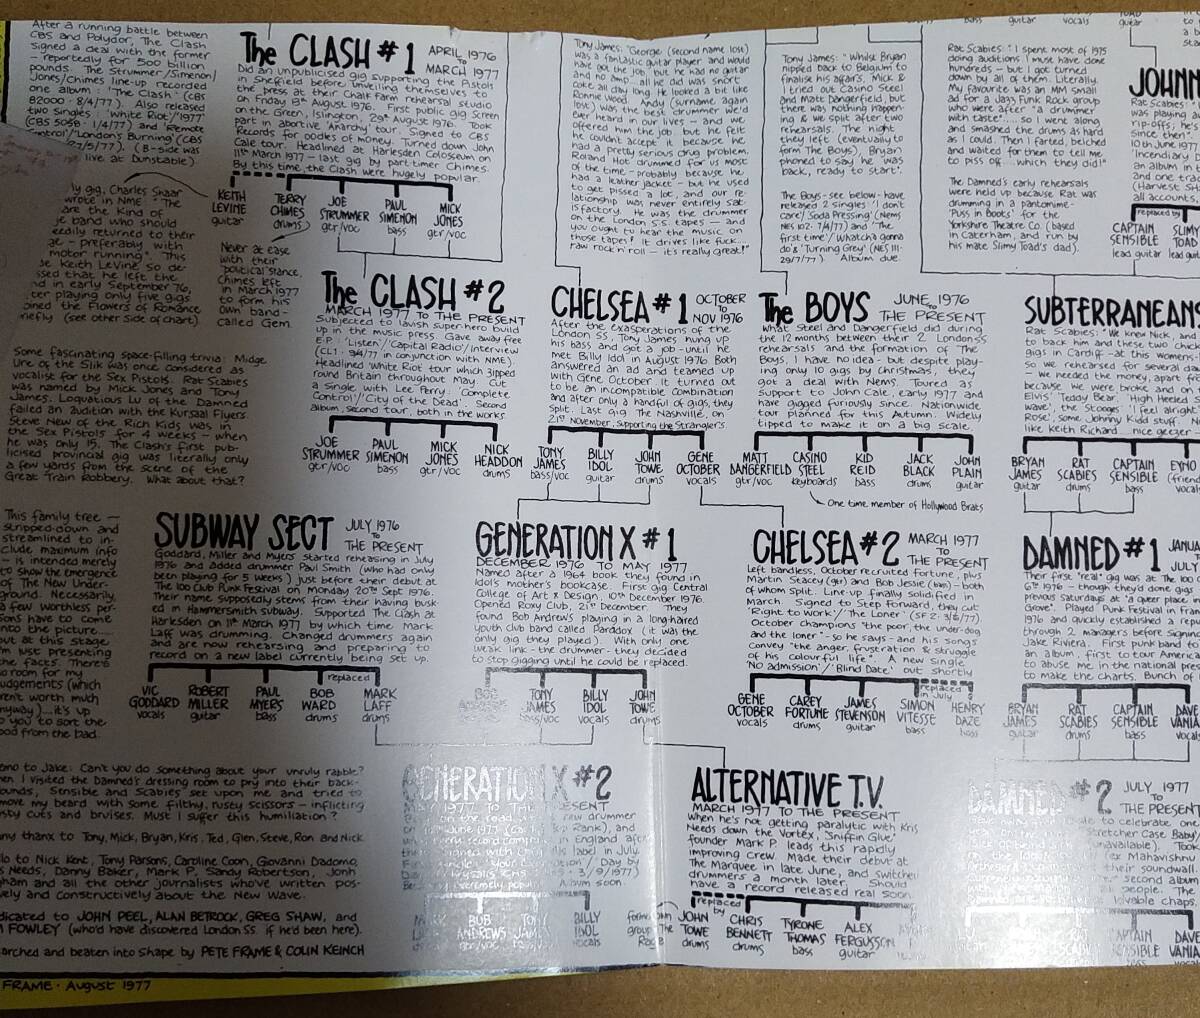 After a running battle between
CBS and Polydor, The Clash
signed a deal with the former
- reportedly for 500 billion
pounds. The Strummer/Simenon/
Jones/Chimes line-up recorded
one album: 'The Clash' (CBS
82000 - 8/4/77). Also released
two singles: 'White Riot'/'1977'
(CBS 5058 - 1/4/77) and 'Remote
Control'/'London's Burning' (CBS
/5/77). (B-side was
live at Dunstable).
The CLASH #1
APRIL 1976
TO
MARCH 1977
Did an unpublicised gig supporting the Pistols
in Sheffield before unveiling themselves to
the press at their Chalk Farm rehearsal studio
on Friday 13th August 1976. First public gig Screen
on the Green, Islington, 29th August 1976. Took
part in abortive 'Anarchy' tour. Signed to CBS
Records for oodles of money. Turned down John
Cale tour. Headlined at Harlesden Colosseum on
11th March 1977 - last gig by part-timer Chimes.
By this time, the Clash were hugely popular.
KEITH LEVINE guitar
TERRY CHIMES drums
JOE STRUMMER gtr/voc
PAUL SIMENON bass
MICK JONES gtr/voc
ly gig, Charles Shaar
wrote in NME: "The
are the kind of
e band who should
eedily returned to their
ge - preferably with
motor running". This
e Keith LeVine so de-
ssed that he left the
nd in early September 76,
ter playing only five gigs
oined the Flowers of Romance
riefly (see other side of chart).
Never at ease
with their
'political stance,'
Chimes left
in March 1977
to form his
own band -
called Gem.
Tony James: "George (second name lost)
was a fantastic guitar player and would
have got the job, but he had no guitar
and no amp.. all he did was snort
coke all day long. He looked a bit like
Ronnie Wood. Andy (surname again
lost) was the best drummer we'd
ever heard in our lives - and we
offered him the job, but he felt
he couldn't accept it because he
had a pretty serious drug problem.
Roland Hot drummed for us most
of the time - probably because he
had a leather jacket - but he used
to get pissed a lot, and our re-
lationship was never entirely sat-
isfactory. He was the drummer
on the London SS tapes - and
you ought to hear the music on
those tapes! It drives like fuck...
raw rock'n'roll - it's really great!"
Tony James: "Whilst Bryan
nipped back to Belgium to
finalise his affairs, Mick &
I tried out Casino Steel
and Matt Dangerfield, but
there was nothing happen-
ing & we split after two
rehearsals. The night
they left (eventually to
form The Boys), Bryan
phoned to say he was
back, ready to start".
The Boys - see below - have
released 2 singles: 'I don't
care'/'Soda Pressing' (NEMS
NES 102 - 7/4/77) and 'The
first time'/'Whatcha Gonna
do's 'Turning Grey' (NES 111 -
29/7/77). Album due.
Rat Scabies: "I spent most of 1975
doing auditions I must have done
hundreds - but I got turned
down by all of them. Literally.
My favourite was an MM small
ad for a Jazz Funk Rock group
who were after "a drummer
with taste"..... so I went along
and smashed the drums as hard
as I could. Then I farted, belched
and waited for them to tell me
to piss off.... which they did!"
The Damned's early rehearsals
were held up because Rat was
drumming in a pantomime -
'Puss in Boots' for the
Yorkshire Theatre Co. (based
in Caterham, and run by
his mate Slimy Toad's dad).
JOHNN
Rat Scabies:
was playing
rip-offs; he's
since then"
10th June 1977
'Incendiary
an album in t
and one trac
(Harvest S
all accounts,
replaced by
CAPTAIN SENSIBLE lead guitar
SLIMY TOAD lead guit
The CLASH #2
MARCH 1977 TO THE PRESENT
Subjected to lavish super-hero build
up in the music press. Gave away free
E.P.: 'Listen'/'Capital Radio'/Interview
(CL1 - 9/4/77 in conjunction with NME).
Headlined White Riot tour which zipped
round Britain throughout May. Cut
a single with Lee Perry. 'Complete
Control'/'City of the Dead'. Second
album, second tour, both in the works
JOE STRUMMER gtr/voc
PAUL SIMENON bass
MICK JONES gtr/voc
NICK HEADDON drums
CHELSEA #1
OCTOBER
TO
NOV 1976
After the exasperations of the
London SS, Tony James hung up
his bass and got a job - until he
met Billy Idol in August 1976. Both
answered an ad and teamed up
with Gene October. It turned out
to be an incompatible combination
and after only a handful of gigs, they
split. Last gig The Nashville, on
21st November, supporting the Stranglers.
TONY JAMES bass/voc
BILLY IDOL guitar
JOHN TOWE drums
GENE OCTOBER vocals
The BOYS
JUNE 1976
TO
THE PRESENT
What Steel and Dangerfield did during
the 12 months between their 2 London SS
rehearsals and the formation of The
Boys, I have no idea - but despite play-
ing only 10 gigs by Christmas, they
got a deal with Nems. Toured as
support to John Cale, early 1977 and
have gigged furiously since. Nationwide
tour planned for this Autumn. Widely
tipped to make it on a big scale.
MATT DANGERFIELD gtr/voc
CASINO STEEL keyboards
KID REID bass
JACK BLACK drums
JOHN PLAIN guitar
One time member of Hollywood Brats
SUBTERRANEANS
Rat Scabies: "We knew Nick, and
to back him and these two chick
gigs in Cardiff - at this womens
so we rehearsed for several day
- we needed the money, apart fr
because we were broke and st
Elvis' 'Teddy Bear', 'High Heeled S
wave', the Stooges 'I feel alright'
Rose', some Johnny Kidd stuff. N
like Keith Richard... nice geezer -
BRYAN JAMES guitar
RAT SCABIES drums
CAPTAIN SENSIBLE bass
Some fascinating space-filling trivia: Midge
Ure of The Slik was once considered as
vocalist for the Sex Pistols. Rat Scabies
was named by Mick Jones and Tony
James. Loquatious Lu of the Damned
failed an audition with the Kursaal Flyers.
Steve New of the Rich Kids was in
the Sex Pistols for 4 weeks - when
he was only 15. The Clash's first pub-
licised provincial gig was literally only
a few yards from the scene of the
Great Train Robbery. What about that?
This family tree -
stripped-down and
streamlined to in-
clude maximum info
- is intended merely
to show the emergence
of The New Under-
ground. Necessarily,
a few worthless per-
sons have to come
into the picture....
but at this stage,
I'm just presenting
the facts. There's
no room for my
judgements (which
aren't worth much
anyway)....it's up
to you to sort the
good from the bad.
SUBWAY SECT
JULY 1976
TO
THE PRESENT
Goddard, Miller and Myers started rehearsing in July
1976 and added drummer Paul Smith (who had only
been playing for 5 weeks) just before their debut at
The 100 Club Punk Festival on Monday 20th Sept 1976.
Their name supposedly stems from their having busk-
ed in Hammersmith subway. Supported The Clash at
Harlesden on 11th March 1977 by which time Mark
Laff was drumming. Changed drummers again
and are now rehearsing and preparing to
record on a new label currently being set up.
replaced
VIC GODDARD vocals
ROBERT MILLER guitar
PAUL MYERS bass
BOB WARD drums
MARK LAFF drums
GENERATION X #1
DECEMBER 1976 TO MAY 1977
Named after a 1964 book they found in
Idol's mother's bookcase. First gig Central
College of Art & Design, 10th December 1976.
Opened Roxy Club, 21st December. They
found Bob Andrews playing in a long-haired
youth club band called Paradox (it was the
only gig they played). With only one
weak link - the drummer - they decided
to stop gigging until he could be replaced.
TONY JAMES bass/voc
BILLY IDOL vocals
JOHN TOWE drums
CHELSEA #2
MARCH 1977
TO
THE PRESENT
Left bandless, October recruited Fortune, plus
Martin Stacey (gtr) and Bob Jessie (bass) - both
of whom split. Line-up finally solidified in
March. Signed to Step Forward, they cut
'Right to work'/'The Loner' (SF2 - 3/6/77)
October champions "the poor, the under-dog
and the loner" - so he says - and his songs
convey "the anger, frustration & struggle
of his colourful life". A new single
'No admission'/'Blind Date' out shortly
replaced in July
GENE OCTOBER vocals
CAREY FORTUNE drums
JAMES STEVENSON guitar
SIMON VITESSE bass
HENRY DAZE bass
DAMNED #1
JANUA
JULY
Their first 'real' gig was at The 100
6th 1976 - though they'd done gig
previous Saturdays at "a queer place in
Grove". Played Punk Festival in Fran
1976 and quickly established a reput
through 2 managers before signing
Jake Riviera. First punk band to
an album, first to tour America
to abuse me in the national pre
to make the charts. Bunch of
BRYAN JAMES guitar
RAT SCABIES drums
CAPTAIN SENSIBLE bass
DAVE VANIA vocals
Memo to Jake: Can't you do something about your unruly rabble?
hen I visited the Damned's dressing room to pry into their back-
ounds, Sensible and Scabies set upon me and tried to
move my beard with some filthy, rusty scissors - inflicting
sty cuts and bruises. Must I suffer this humiliation?
any thanx to Tony, Mick, Bryan, Kris, Ted, Glen, Steve, Ron and Nick
llo to Nick Kent, Tony Parsons, Caroline Coon, Giovanni Dadomo,
s Needs, Danny Baker, Mark P, Sandy Robertson, Jonh
gham and all the other journalists who've written pos-
vely and constructively about the New Wave.
dicated to JOHN PEEL, ALAN BETROCK, GREG SHAW, and
M FOWLEY (who'd have discovered London SS if he'd been here).
arched and beaten into shape by PETE FRAME & COLIN KEINCH
FRAME · August 1977
GENERATION X #2
MAY 1977 TO THE PRESENT
BOB ANDREWS gtr/voc
TONY JAM
BILLY IDOL vocals
ALTERNATIVE T.V.
MARCH 1977 TO THE PRESENT
When he's not getting paralytic with Kris
Needs down the Vortex, 'Sniffin Glue'
founder Mark P. leads this rapidly
improving crew. Made their debut at
The Marquee in late June, and switched
drummers a month later. Should
have a record released real soon.
replaced by
JOHN TOWE drums
CHRIS BENNETT drums
TYRONE THOMAS bass
ALEX FERGUSSON guitar
DAMNED #2
JULY 1977
TO
THE PRESENT
to celebrate, one
'Stretcher Case Baby'
unavailable). Took
(ex Mahavishnu
their soundwall.
second album
people. The
lovable chaps.
CAPTAIN SENSIBLE
DAVE VANIA vocals